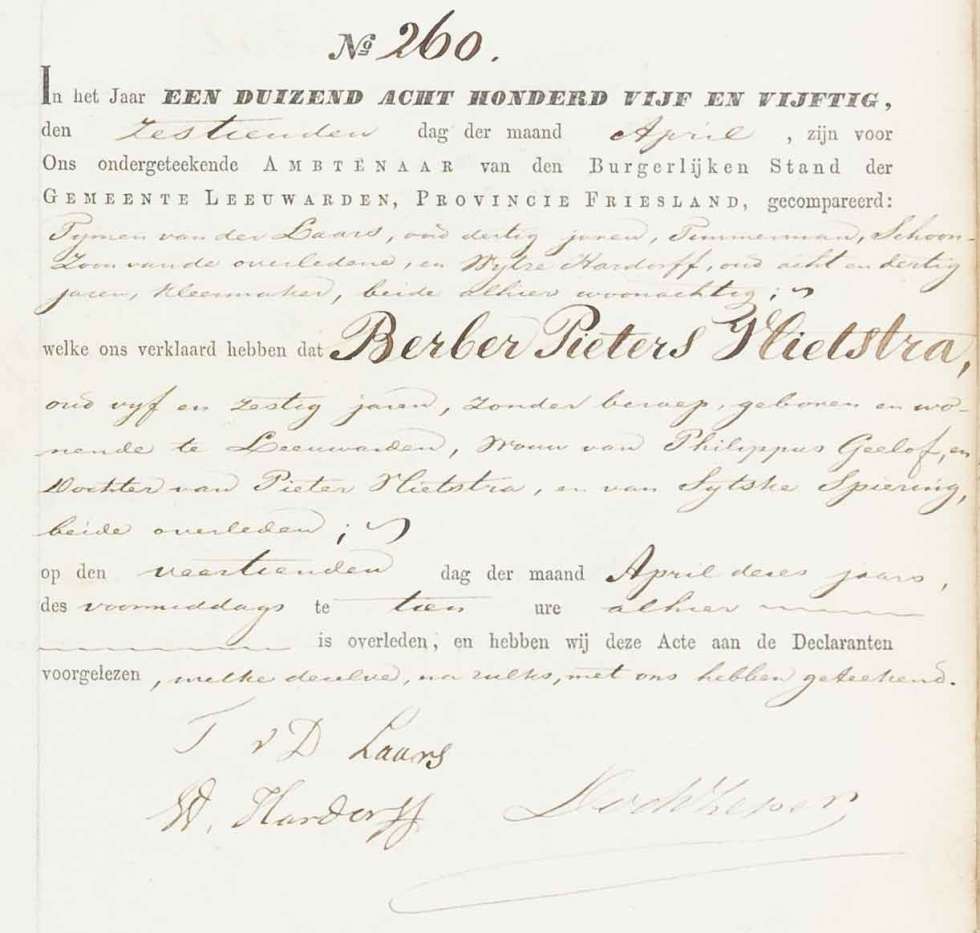 № 260.
In het Jaar EEN DUIZEND ACHT HONDERD VIJF EN VIJFTIG,
den zestienden dag der maand April, zijn voor
Ons ondergeteekende AMBTENAAR van den Burgerlijken Stand der
GEMEENTE LEEUWARDEN, PROVINCIE FRIESLAND, gecompareerd:
Tymen van der Laars, oud dertig jaren, Timmerman, Schoon-
zoon van de overledene, en Wytze Hardorff, oud acht en dertig
jaren, kleermaker, beide alhier woonachtig;
welke ons verklaard hebben dat Berber Pieters Vlietstra,
oud vyf en zestig jaren, zonder beroep, geboren en wo-
nende te Leeuwarden, Vrouw van Philippus Geelof, en
Dochter van Pieter Vlietstra, en van Sytske Spiering,
beide overleden;
op den veertienden dag der maand April dezes jaars,
des voormiddags te tien ure alhier
is overleden, en hebben wij deze Acte aan de Declaranten
voorgelezen, welke dezelve, na zulks, met ons hebben geteekend.
T v D Laars
W. Hardorff